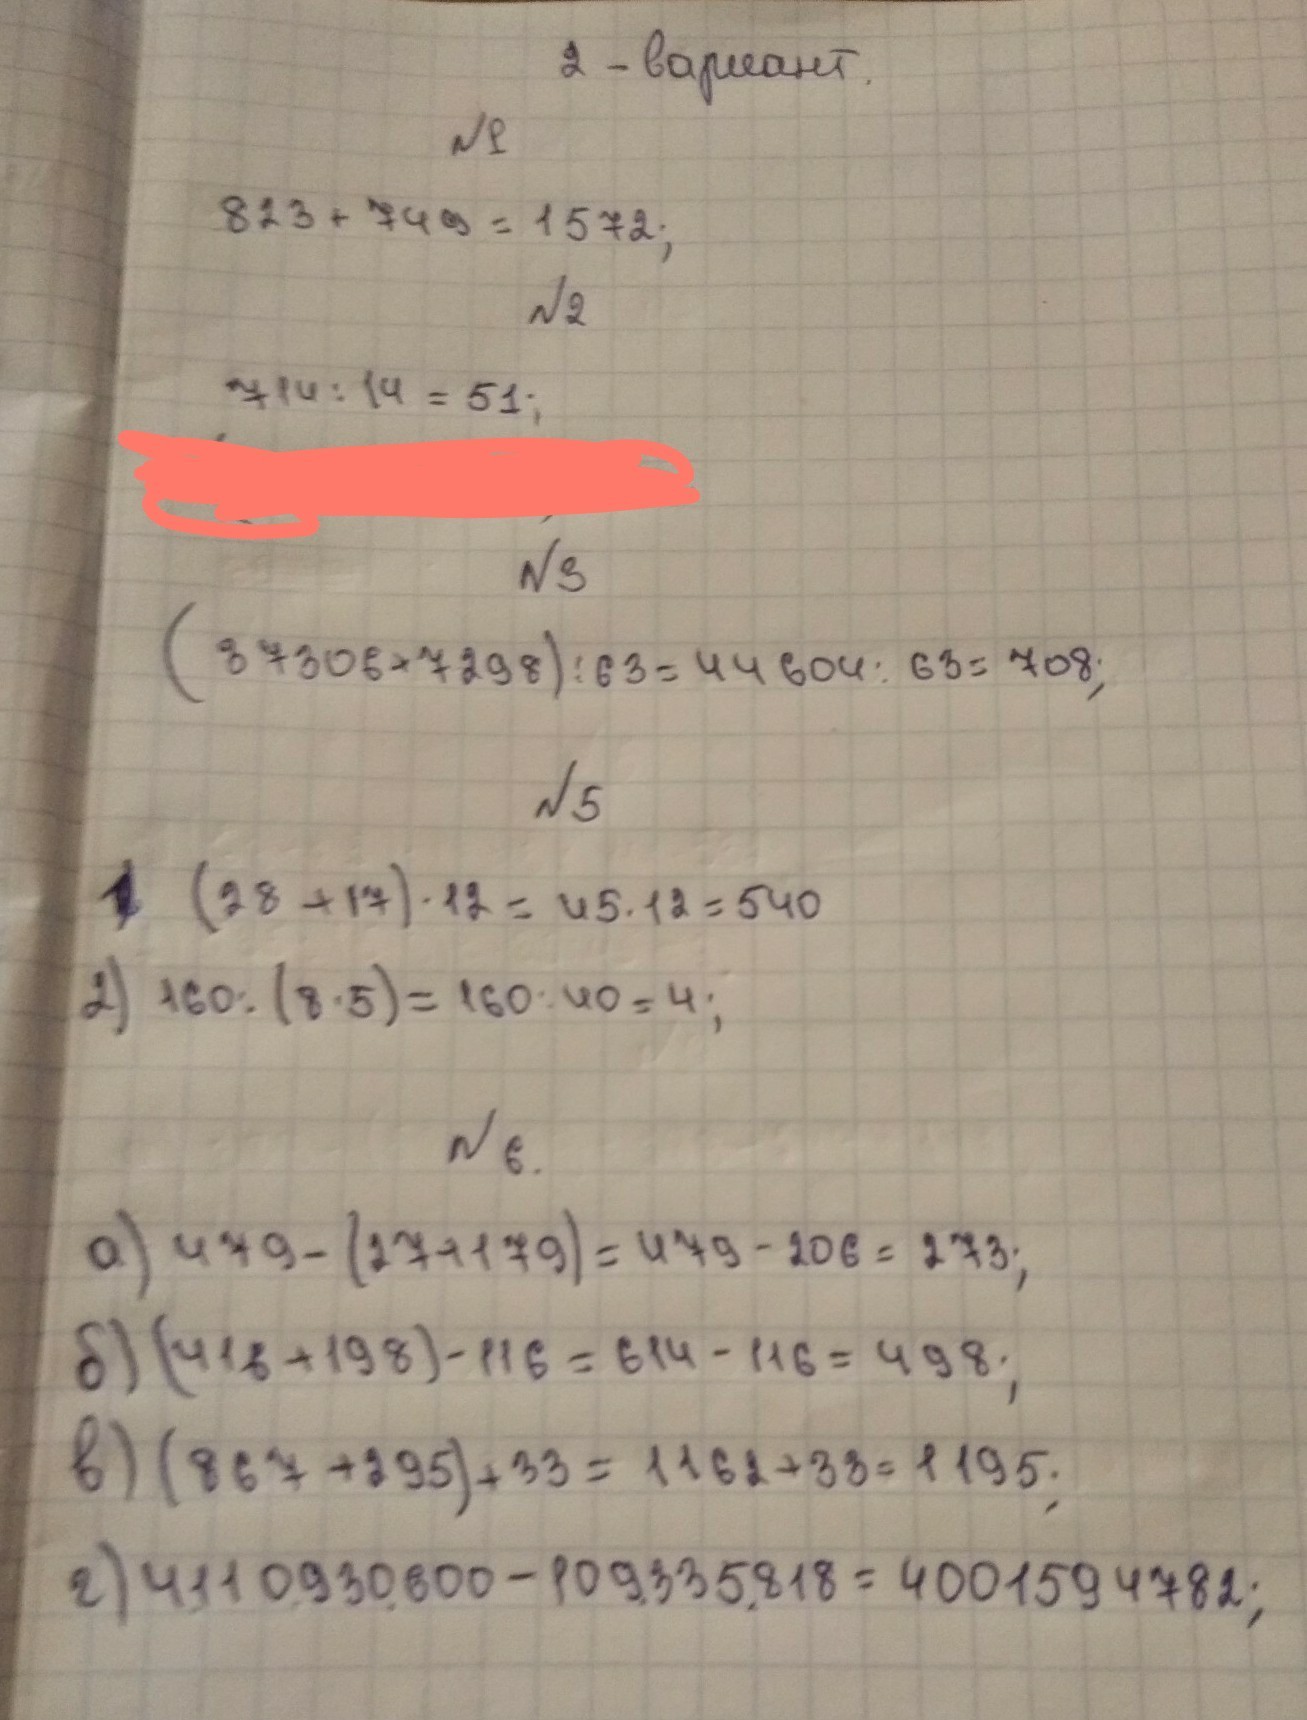 2 - вариант.
№1
823 + 749 = 1572;
№2
714 : 14 = 51;
№3
(37306+7298) : 63 = 44604 : 63 = 708;
№5
1 (28 + 17) · 12 = 45 · 12 = 540
2) 160 : (8 · 5) = 160 : 40 = 4;
№6.
а) 479 - (27+179) = 479 - 206 = 273;
б) (416 + 198) - 116 = 614 - 116 = 498;
в) (867 + 295) + 33 = 1162 + 33 = 1195;
г) 4.110.930.600 - 109.335.818 = 4001594782;